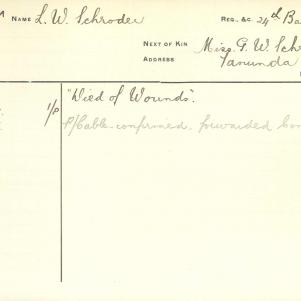 NAME L. W. Schroder REG. &C. 24th Ba
NEXT OF KIN Miss. G. W. Sch
ADDRESS Tanunda
1/P "Died of Wounds".
P/Cable confirmed forwarded